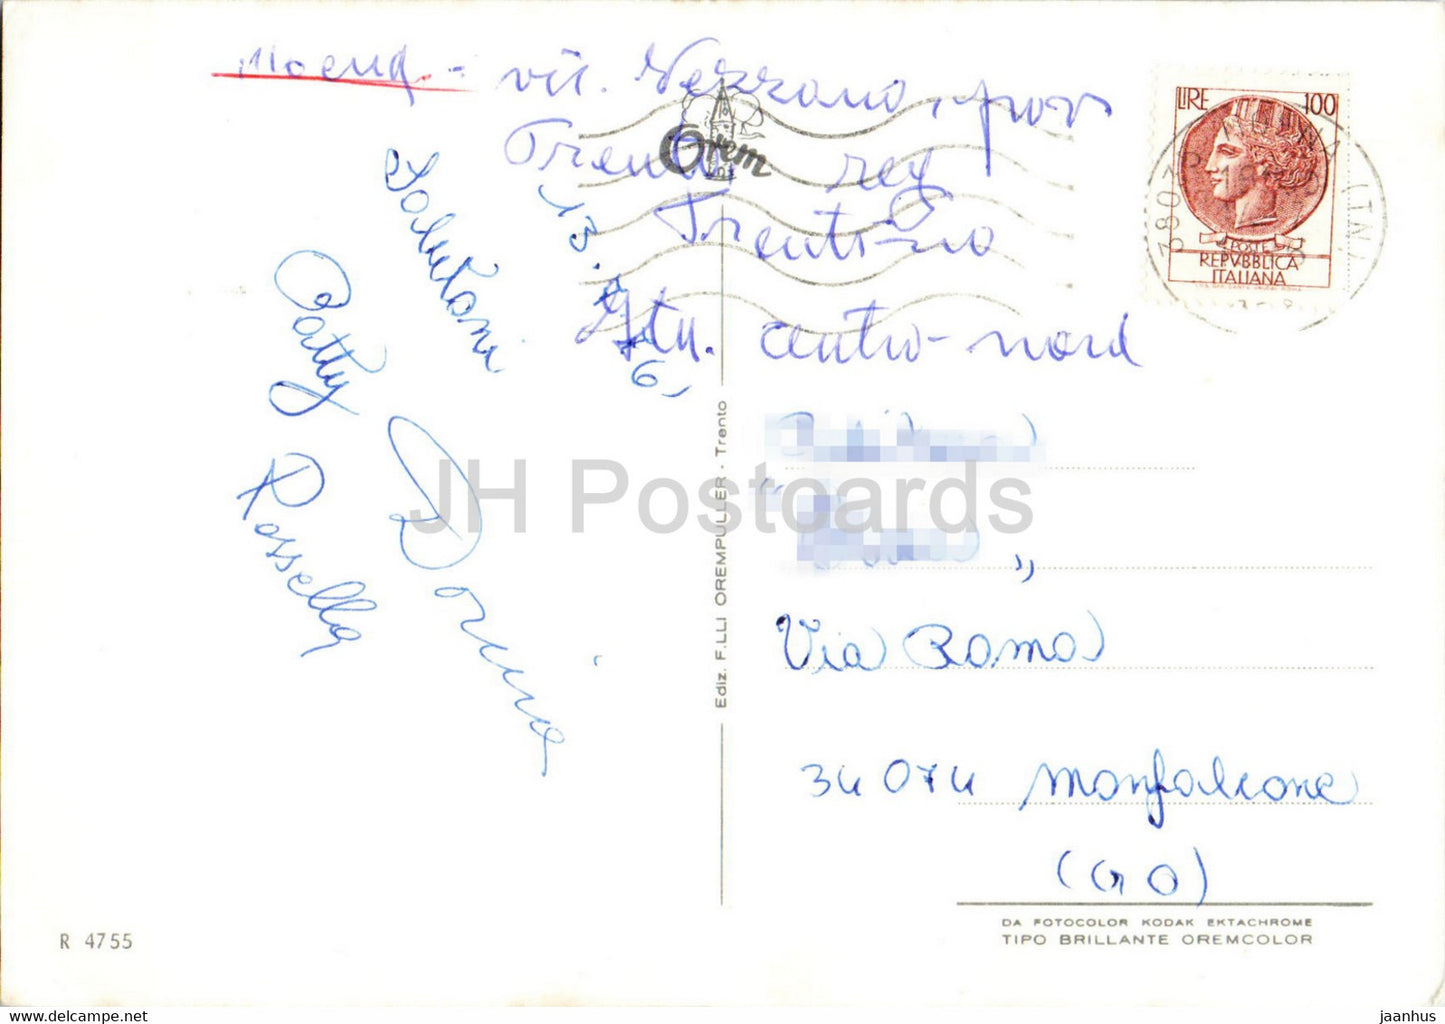 Moena - vic. Vezzano, prov
Trento reg
Trentino
Ita. centro-nord
Orem
LIRE 100
POSTE
REPVBBLICA
ITALIANA
38030
(TN)
Salutoni
13.
76
Patty
Dorina
Rossella
Ediz. F.LLI OREMPULLER - Trento
JH Postcards
"
"
Via Roma
34074 Monfalcone
(GO)
R 4755
DA FOTOCOLOR KODAK EKTACHROME
TIPO BRILLANTE OREMCOLOR
www.delcampe.net
jaanhus